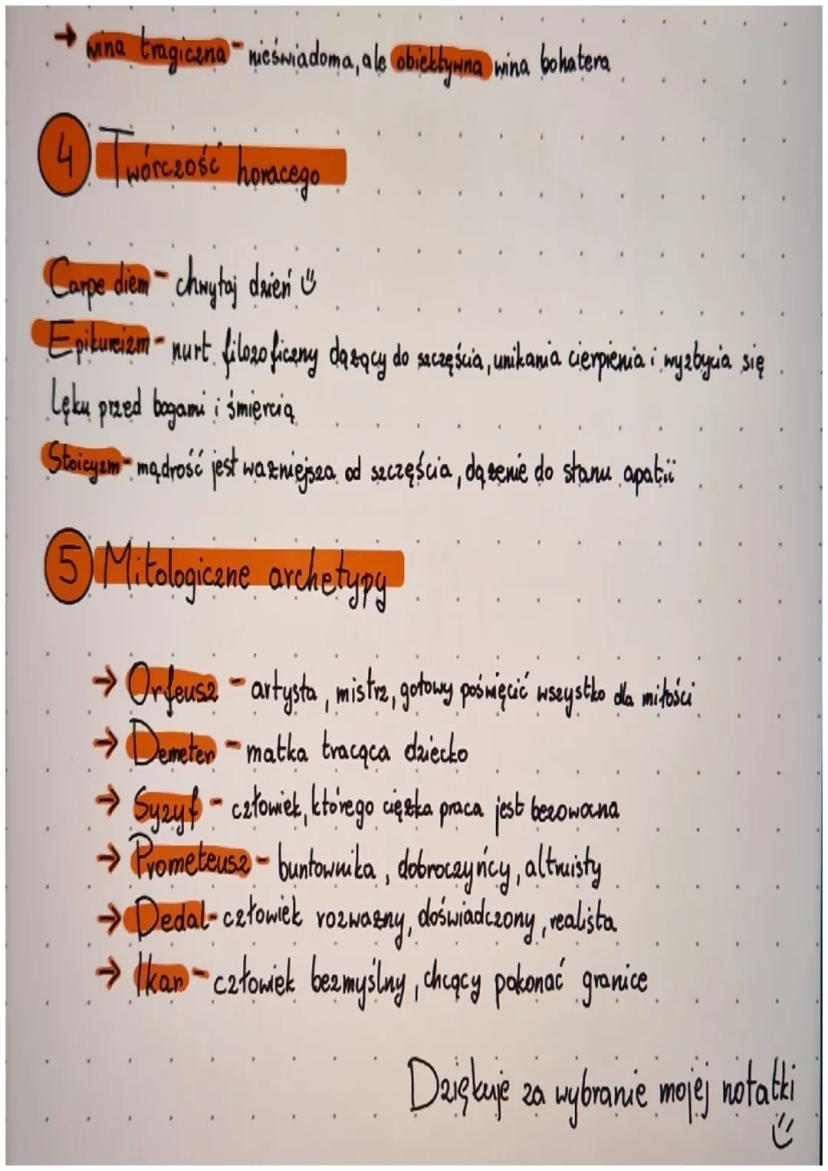 → wina tragiczna - nieświadoma, ale obiektywna wina bohatera
4 Twórczość horacego
Carpe diem - chwytaj dzień
Epikureizm - nurt filozoficzny dążący do szczęścia, unikania cierpienia i wyzbycia się
lęku przed bogami i śmiercią
Stoicyzm - mądrość jest ważniejsza od szczęścia, dążenie do stanu apatii
5 Mitologiczne archetypy
→ Orfeusz - artysta, mistrz, gotowy poświęcić wszystko dla miłości
→ Demeter - matka tracąca dziecko
→ Syzyf - człowiek, którego ciężka praca jest bezowocna
→ Prometeusz - buntownika, dobroczyńcy, altruisty
→ Dedal - człowiek rozważny, doświadczony, realista
→ Ikar - człowiek bezmyślny, chcący pokonać granice
Dziękuje za wybranie mojej notatki